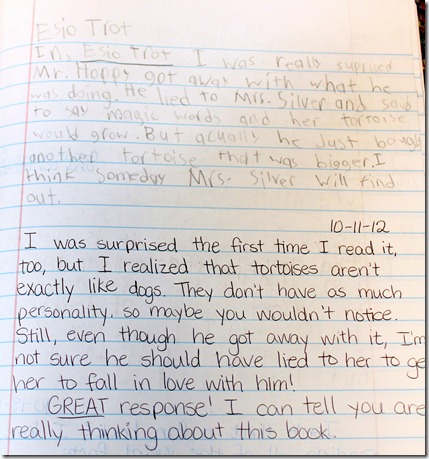 Esio Trot
In, Esio Trot I was really supried
Mr. Hoppy got away with what he
was doing. He lied to Mrs. Silver and said
to say magic words and her tortoise
would grow. But acually he Just bough
another tortoise that was bigger. I
think someday Mrs. Silver will find
out.
10-11-12
I was surprised the first time I read it,
too, but I realized that tortoises aren't
exactly like dogs. They don't have as much
personality, so maybe you wouldn't notice.
Still, even though he got away with it, I'm
not sure he should have lied to her to ge
her to fall in love with him!
GREAT response! I can tell you are
really thinking about this book.